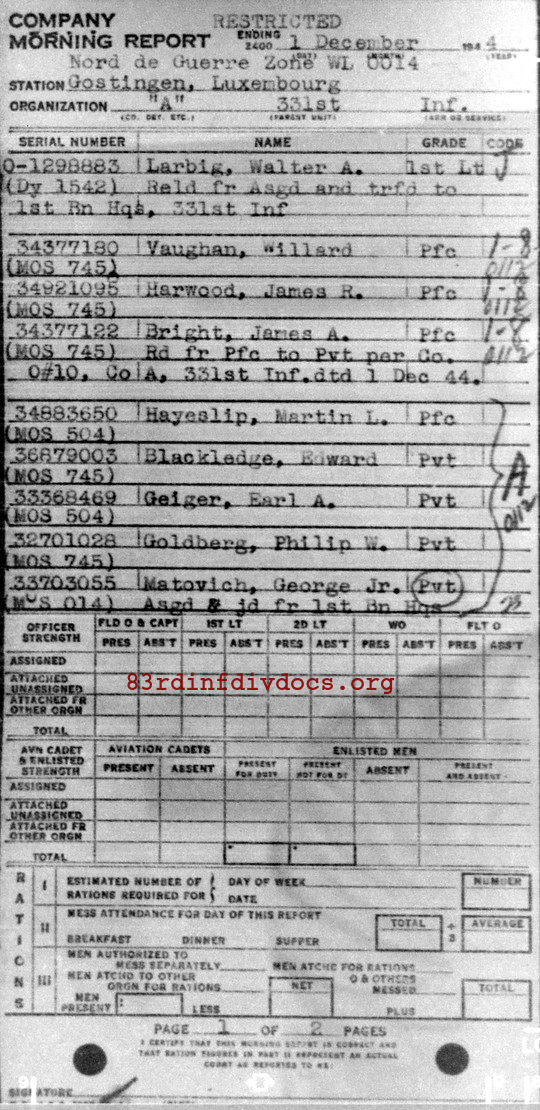 COMPANY RESTRICTED
MORNING REPORT ENDING 2400 1 December 1944
(DAY) (MONTH) (YEAR)
Nord de Guerre Zone WL 0014
STATION Gostingen, Luxembourg
ORGANIZATION "A" 331st Inf.
(CO. DET. ETC.) (PARENT UNIT) (ARM OR SERVICE)
SERIAL NUMBER NAME GRADE CODE
O-1298883 Larbig, Walter A. 1st Lt J
(Dy 1542) Reld fr Asgd and trfd to
1st Bn Hqs, 331st Inf
34377180 Vaughan, Willard Pfc 1-8
(MOS 745) 0112
34921095 Harwood, James R. Pfc 1-8
(MOS 745) 0112
34377122 Bright, James A. Pfc 1-8
(MOS 745) Rd fr Pfc to Pvt per Co. 0112
O#10, Co A, 331st Inf.dtd 1 Dec 44.
34883650 Hayeslip, Martin L. Pfc
(MOS 504)
36879003 Blackledge, Edward Pvt A
(MOS 745)
33368469 Geiger, Earl A. Pvt 0112
(MOS 504)
32701028 Goldberg, Philip W. Pvt
(MOS 745)
33703055 Matovich, George Jr. Pvt
(MOS 014) Asgd & jd fr 1st Bn Hqs
OFFICER STRENGTH FLD O & CAPT 1ST LT 2D LT WO FLT O
PRES ABS'T PRES ABS'T PRES ABS'T PRES ABS'T PRES ABS'T
ASSIGNED
ATTACHED UNASSIGNED
83rdinfdivdocs.org
ATTACHED FR OTHER ORGN
TOTAL
AVN CADET & ENLISTED STRENGTH AVIATION CADETS ENLISTED MEN
PRESENT ABSENT PRESENT FOR DUTY PRESENT NOT FOR DY ABSENT PRESENT AND ABSENT
ASSIGNED
ATTACHED UNASSIGNED
ATTACHED FR OTHER ORGN
TOTAL
RATIONS
I ESTIMATED NUMBER OF DAY OF WEEK NUMBER
RATIONS REQUIRED FOR DATE
II MESS ATTENDANCE FOR DAY OF THIS REPORT TOTAL ÷ 3 AVERAGE
BREAKFAST DINNER SUPPER
III MEN AUTHORIZED TO MESS SEPARATELY MEN ATCHD FOR RATIONS
MEN ATCHD TO OTHER ORGN FOR RATIONS NET O & OTHERS MESSED TOTAL
MEN PRESENT LESS PLUS
PAGE 1 OF 2 PAGES
I CERTIFY THAT THIS MORNING REPORT IS CORRECT AND
THAT RATION FIGURES IN PART III REPRESENT AN ACTUAL
COUNT AS REPORTED TO ME:
SIGNATURE